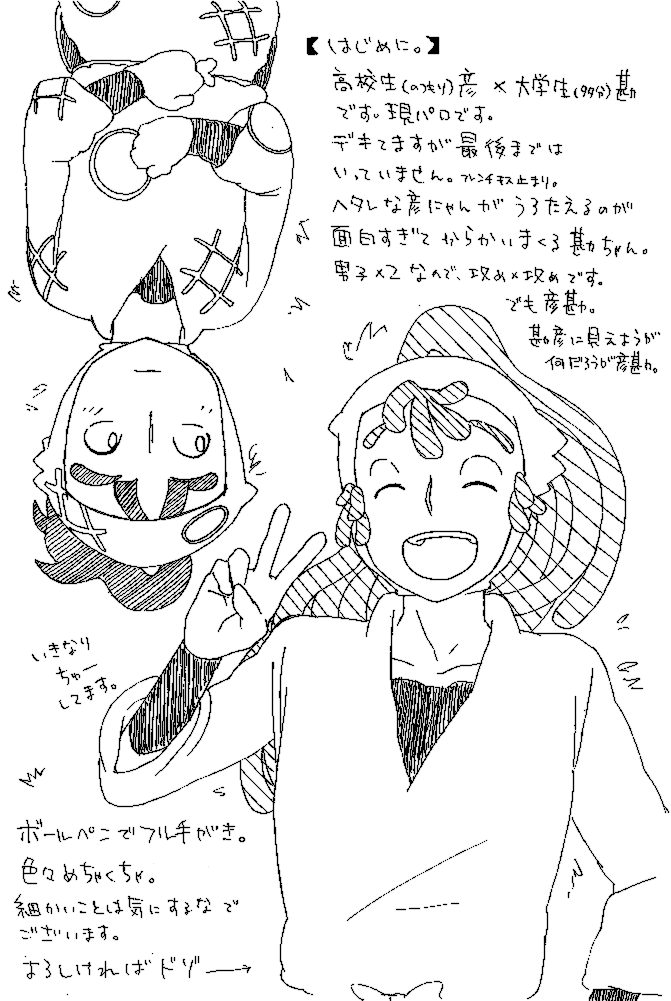 【はじめに。】
高校生(のっぽり)彦×大学生(タカ分)勘
です。現パロです。
デキてますが最後までは
いっていません。フレンチキス止まり。
ヘタレな彦にゃんがうろたえるのが
面白すぎてからかいまくる勘ちゃん。
男子×2なので、攻め×攻めです。
でも彦勘。
勘彦に見えようが
何だろうが彦勘。
いきなり
ちゅー
してます。
ボールペンでフル手がき。
色々めちゃくちゃ。
細かいことは気にするなで
ございます。
よろしければドゾ→